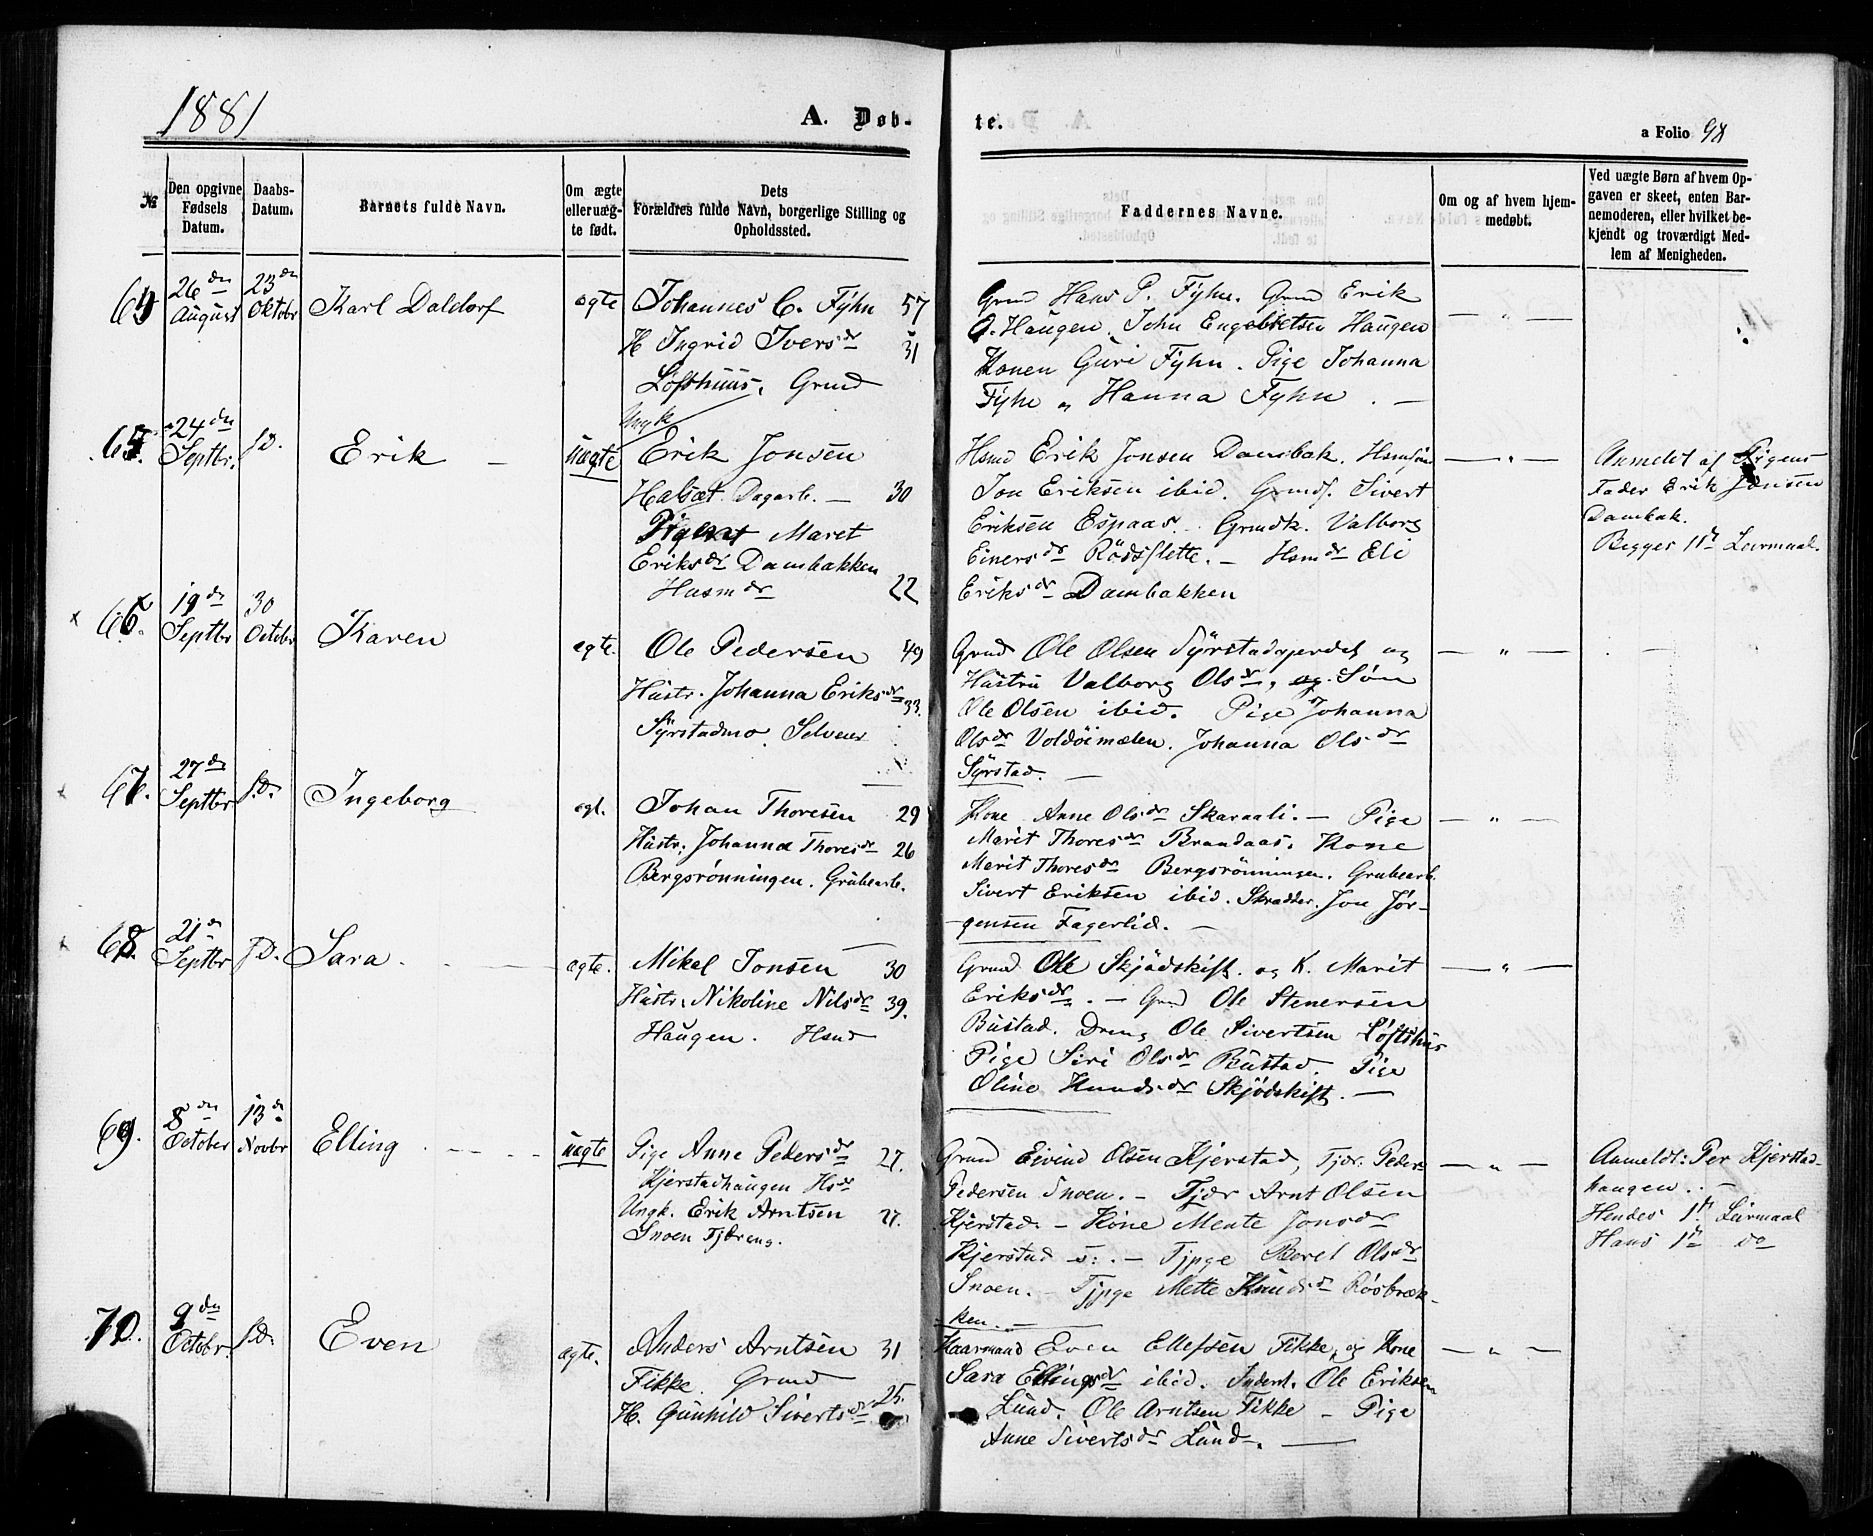 1881
A. Døb-
te.
a Folio 98
№
Den opgivne
Fødsels
Datum.
Daabs-
Datum.
Barnets fulde Navn.
Om ægte
eller uæg-
te født.
Dets
Forældres fulde Navn, borgerlige Stilling og
Opholdssted.
Faddernes Navne.
Om og af hvem hjem-
medøbt.
Ved uægte Børn af hvem Op-
gaven er skeet, enten Bar-
nemoderen, eller hvilket be-
kjendt og troværdigt Med-
lem af Menigheden.
64
26de
August
23de
Oktobr
Karl Daldorf
ægte
Johannes C. Fyhn 57
H Ingrid Iversdr 31
Lofthuus, Grmd
Grmd Hans P. Fyhn. Grmd Erik
O. Haugen. John Engebretsen Haugen
Konen Guri Fyhn. Pige Johanna
Fyhn „ Hanna Fyhn. —
— „ —
65.
24de
Septbr.
s.D.
Erik —
uægte
Ungk
Erik Jonsen
Halsæt. Dagarb. — 30
Pigen Maret
Eriksdr Dambakken
Husmdr 22
Hsmd Erik Jonsen Dambak. Hsmsøn
Jon Eriksen ibid. Grmds. Sivert
Eriksen Espaas. Grmdk. Valborg
Einersdr Rødsflette. — Hsmdr Eli
Eriksdr Dambakken
— „ —
Anmeldt af Pigens
Fader Erik Jonsen
Dambak.
Begges 1ste Leirmaal.
x 66.
19de
Septbr
30
Octobr
Karen
ægte.
Ole Pedersen 49
Hustr. Johanna Eriksdr 33.
Syrstadmo. Selveier
Grmd Ole Olsen Syrstadgjerdet og
Hustru Valborg Olsdr, og Søn
Ole Olsen ibid. Pige Johanna
Olsdr Voldøimælen. Johanna Olsdr
Syrstad. —
— „ —
67.
27de
Septbr
s.D.
Ingeborg
ægt.
Johan Thoresen 29
Hustr: Johanna Thoresdr 26
Bergsrønningen. Grubearb.
Kone Anne Olsdr Skaraali. — Pige
Marit Thoresdr Brandaas. Kone
Marit Thoresdr Bergsrönningen. Grubearb.
Sivert Eriksen ibid. Skrædder. Jon Jør-
gensen Fagerlid. —
— „ —
68.
21de
Septbr
s.D.
Sara.
ægte.
Mikal Jonsen 30
Hustr. Nikoline Nilsdr 39.
Haugen. Hsmd
Grmd Ole Skjödskift. og K. Marit
Eriksdr. — Grmd Ole Stenersen
Bustad. Dreng Ole Sivertsen Løftshus
Pige Siri Olsdr Bustad. Pige
Oline Knudsdr Skjödskift. —
— „ —
69.
8de
October
13de
Novbr
Elling
uægte
Pige Anne Pedersdr 27.
Kjerstadhaugen Hsdr
Ungk. Erik Arntsen 27.
Snoen Tjdreng.
Grmd Eivind Olsen Kjerstad, Tjdr. Peder
Pedersen Snoen. — Tjdr Arnt Olsen
Kjerstad. — Kone Mente Jonsdr
Kjerstad — Tjpge Beret Olsdr
Snoen. — Tjpge Mette Knudsdr Røsbræk-
ken. —
— „ —
Anmeldt: Per Kjerstad-
haugen. —
Hendes 1ste Leirmaal
Hans 1ste do
70.
9de
Octobr.
s.D.
Even
ægte.
Anders Arntsen 31
Fikke. Grmd
H. Gunhild Sivertsdr 25.
Kaarmand Even Ellefsen Fikke, og Kone
Sara Ellingsdr ibid. Inderst. Ole Eriksen
Lund. Ole Arntsen Fikke — Pige
Anne Sivertsdr Lund. —
— „ —